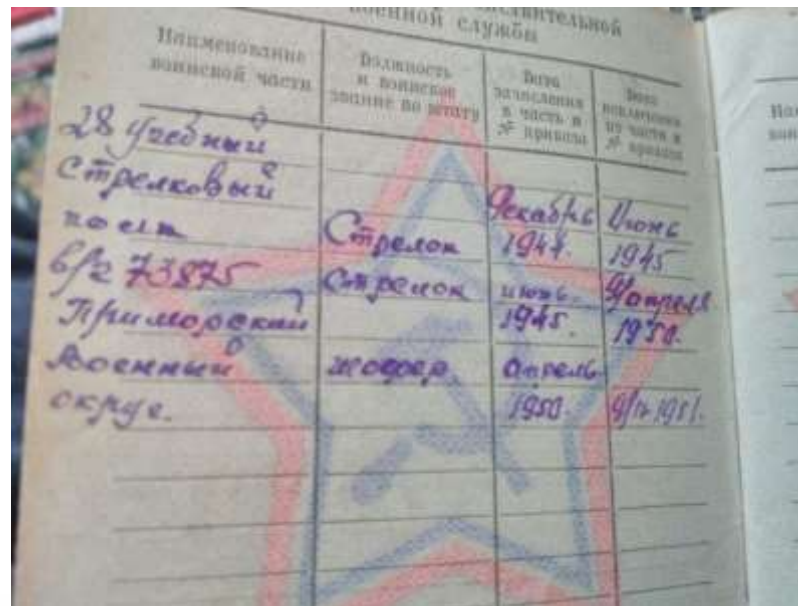 действительной
военной службы
Наименование
воинской части
Должность
и воинское
звание по штату
Дата
зачисления
в часть и
№ приказа
Дата
исключения
из части и
№ приказа
28 учебный
Стрелковый
полк Стрелок Декабрь 1944. Июнь 1945
в/ч 73875 Стрелок июнь 1945. апреля 1950.
Приморский
военный шофер апрель
округ. 1950. 1951.